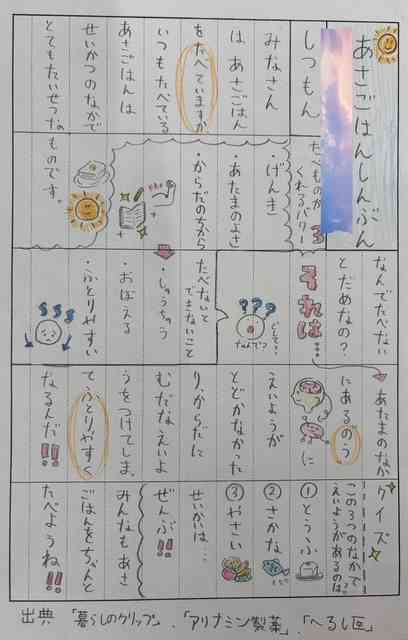 あさごはんしんぶん
しつもん
みなさん
は あさごはん
をたべていますか
いつもたべている
あさごはんは
せいかつのなかで
とてもたいせつなものです。
たべものが
くれるパワー3
・げんき
・あたまのよさ
・からだのちから
なんでたべない
とだめなの？
それは…
???
なんで?
たべないと
できないこと
・しゅうちゅう
・おぼえる
・ふとりやすい
あたまのなか
にあるのう
に
えいようが
とどかなかった
り、からだに
むだなえいよ
うをつけてしまっ
てふとりやすく
なるんだ!!
クイズ
この3つのなかで
えいようがあるのは?
①とうふ
②さかな
③やさい
せいかいは…
ぜんぶ!!
みんなもあさ
ごはんをちゃんと
たべようね!!
出典 「暮らしのクリップ」.「アリナミン製薬」.「へるし医」